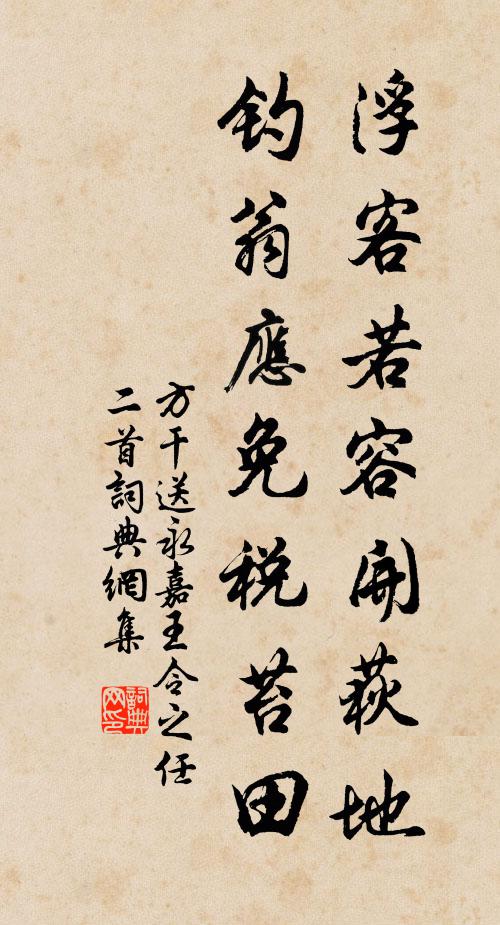 浮客若容開荻地
釣翁應免稅苔田
方干送永嘉王令之任
二首詞典網集
詞典网印